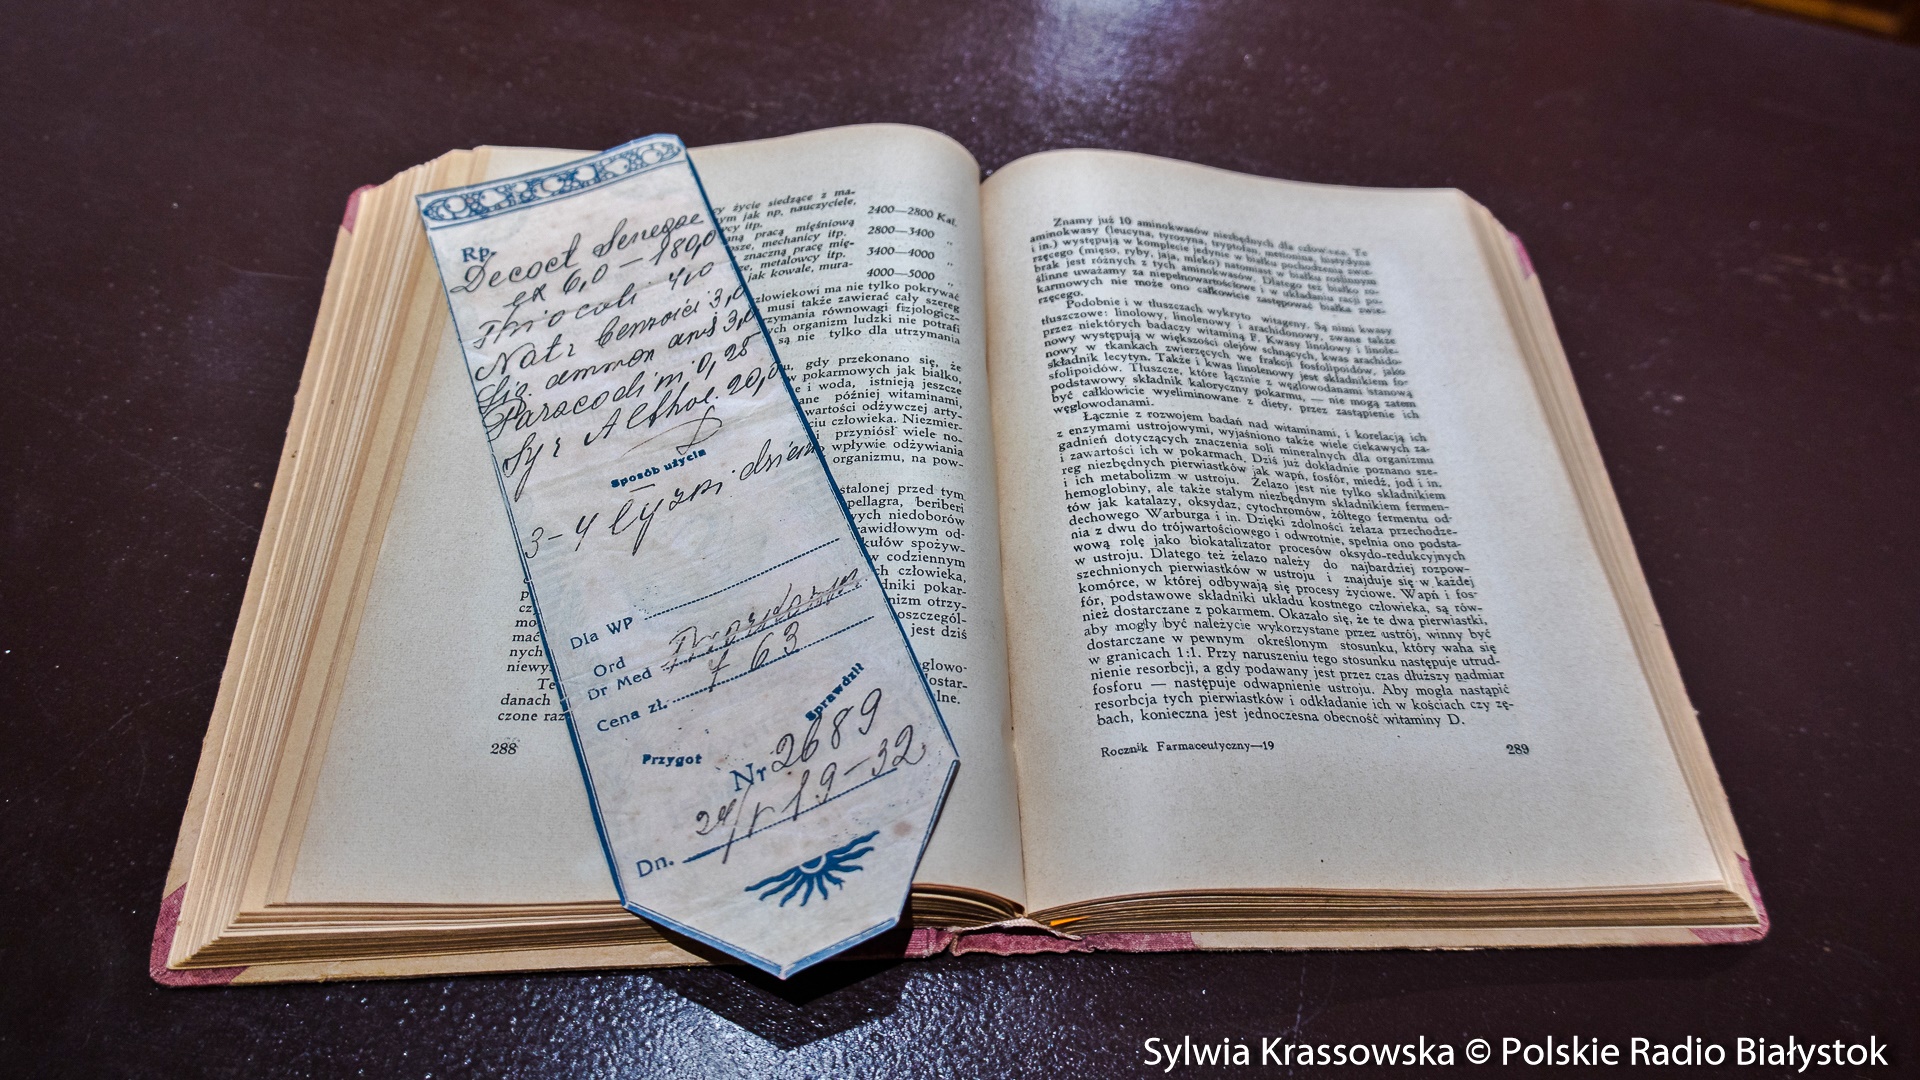 Rp.
Decoct Senegae
ex 6,0 — 180,0
Thiocoli 4,0
Natr benzoici 3,0
Liq. ammon anis 3,0
Paracodini 0,25
Syr Althae. 20,0
Sposób użycia
3–4 łyżki dzien
Dla WP
Ord
Dr Med
Cena zł. 7 63
Sprawdził
Przygot
Nr 2689
Dn. 24/V 19–32
y życie siedzące z ma-
ym jak np. nauczyciele,
ycy itp. 2400—2800 Kal.
ną pracą mięśniową
psze, mechanicy itp. 2800—3400 „
znaczną pracę mię-
ze, metalowcy itp. 3400—4000 „
jak kowale, mura-
4000—5000 „
człowiekowi ma nie tylko pokrywać
musi także zawierać cały szereg
zymania równowagi fizjologicz-
ch organizm ludzki nie potrafi
są nie tylko dla utrzymania
u, gdy przekonano się, że
w pokarmowych jak białko,
e i woda, istnieją jeszcze
ane później witaminami,
wartości odżywczej arty-
ciu człowieka. Niezmier-
i przyniósł wiele no-
wpływie odżywiania
organizmu, na pow-
stalonej przed tym
pellagra, beriberi
wych niedoborów
rawidłowym od-
kułów spożyw-
w codziennym
ch człowieka,
dniki pokar-
nizm otrzy-
oszczegól-
jest dziś
mo
mać
nych
niewys
glowo-
Te
dostar-
danach
lne.
czone raz
288
Znamy już 10 aminokwasów niezbędnych dla człowieka. Te
aminokwasy (leucyna, tyrozyna, tryptofan, metionina, histydyna
i in.) występują w komplecie jedynie w białku pochodzenia zwie-
rzęcego (mięso, ryby, jaja, mleko) natomiast w białku roślinnym
brak jest różnych z tych aminokwasów. Dlatego też białko ro-
ślinne uważamy za niepełnowartościowe i w układaniu racji po-
karmowych nie może ono całkowicie zastępować białka zwie-
rzęcego.
Podobnie i w tłuszczach wykryto witageny. Są nimi kwasy
tłuszczowe: linolowy, linolenowy i arachidonowy, zwane także
przez niektórych badaczy witaminą F. Kwasy linolowy i linole-
nowy występują w większości olejów schnących, kwas arachido-
nowy w tkankach zwierzęcych we frakcji fosfolipoidów, jako
składnik lecytyn. Także i kwas linolenowy jest składnikiem fo-
sfolipoidów. Tłuszcze, które łącznie z węglowodanami stanową
podstawowy składnik kaloryczny pokarmu, — nie mogą zatem
być całkiowicie wyeliminowane z diety, przez zastąpienie ich
węglowodanami.
Łącznie z rozwojem badań nad witaminami, i korelacją ich
z enzymami ustrojowymi, wyjaśniono także wiele ciekawych za-
gadnień dotyczących znaczenia soli mineralnych dla organizmu
i zawartości ich w pokarmach. Dziś już dokładnie poznano sze-
reg niezbędnych pierwiastków jak wapń, fosfór, miedź, jod i in.
i ich metabolizm w ustroju. Żelazo jest nie tylko składnikiem
hemoglobiny, ale także stałym niezbędnym składnikiem fermen-
tów jak katalazy, oksydaz, cytochromów, żółtego fermentu od-
dechowego Warburga i in. Dzięki zdolności żelaza przechodze-
nia z dwu do trójwartościowego i odwrotnie, spełnia ono podsta-
wową rolę jako biokatalizator procesów oksydo-redukcyjnych
w ustroju. Dlatego też żelazo należy do najbardziej rozpow-
szechnionych pierwiastków w ustroju i znajduje się w każdej
komórce, w której odbywają się procesy życiowe. Wapń i fos-
fór, podstawowe składniki układu kostnego człowieka, są rów-
nież dostarczane z pokarmem. Okazało się, że te dwa pierwiastki,
aby mogły być należycie wykorzystane przez ustrój, winny być
dostarczane w pewnym określonym stosunku, który waha się
w granicach 1:1. Przy naruszeniu tego stosunku następuje utrud-
nienie resorbcji, a gdy podawany jest przez czas dłuższy nadmiar
fosforu — następuje odwapnienie ustroju. Aby mogła nastąpić
resorbcja tych pierwiastków i odkładanie ich w kościach czy zę-
bach, konieczna jest jednoczesna obecność witaminy D.
Rocznik Farmaceutyczny—19
289
Sylwia Krassowska © Polskie Radio Białystok